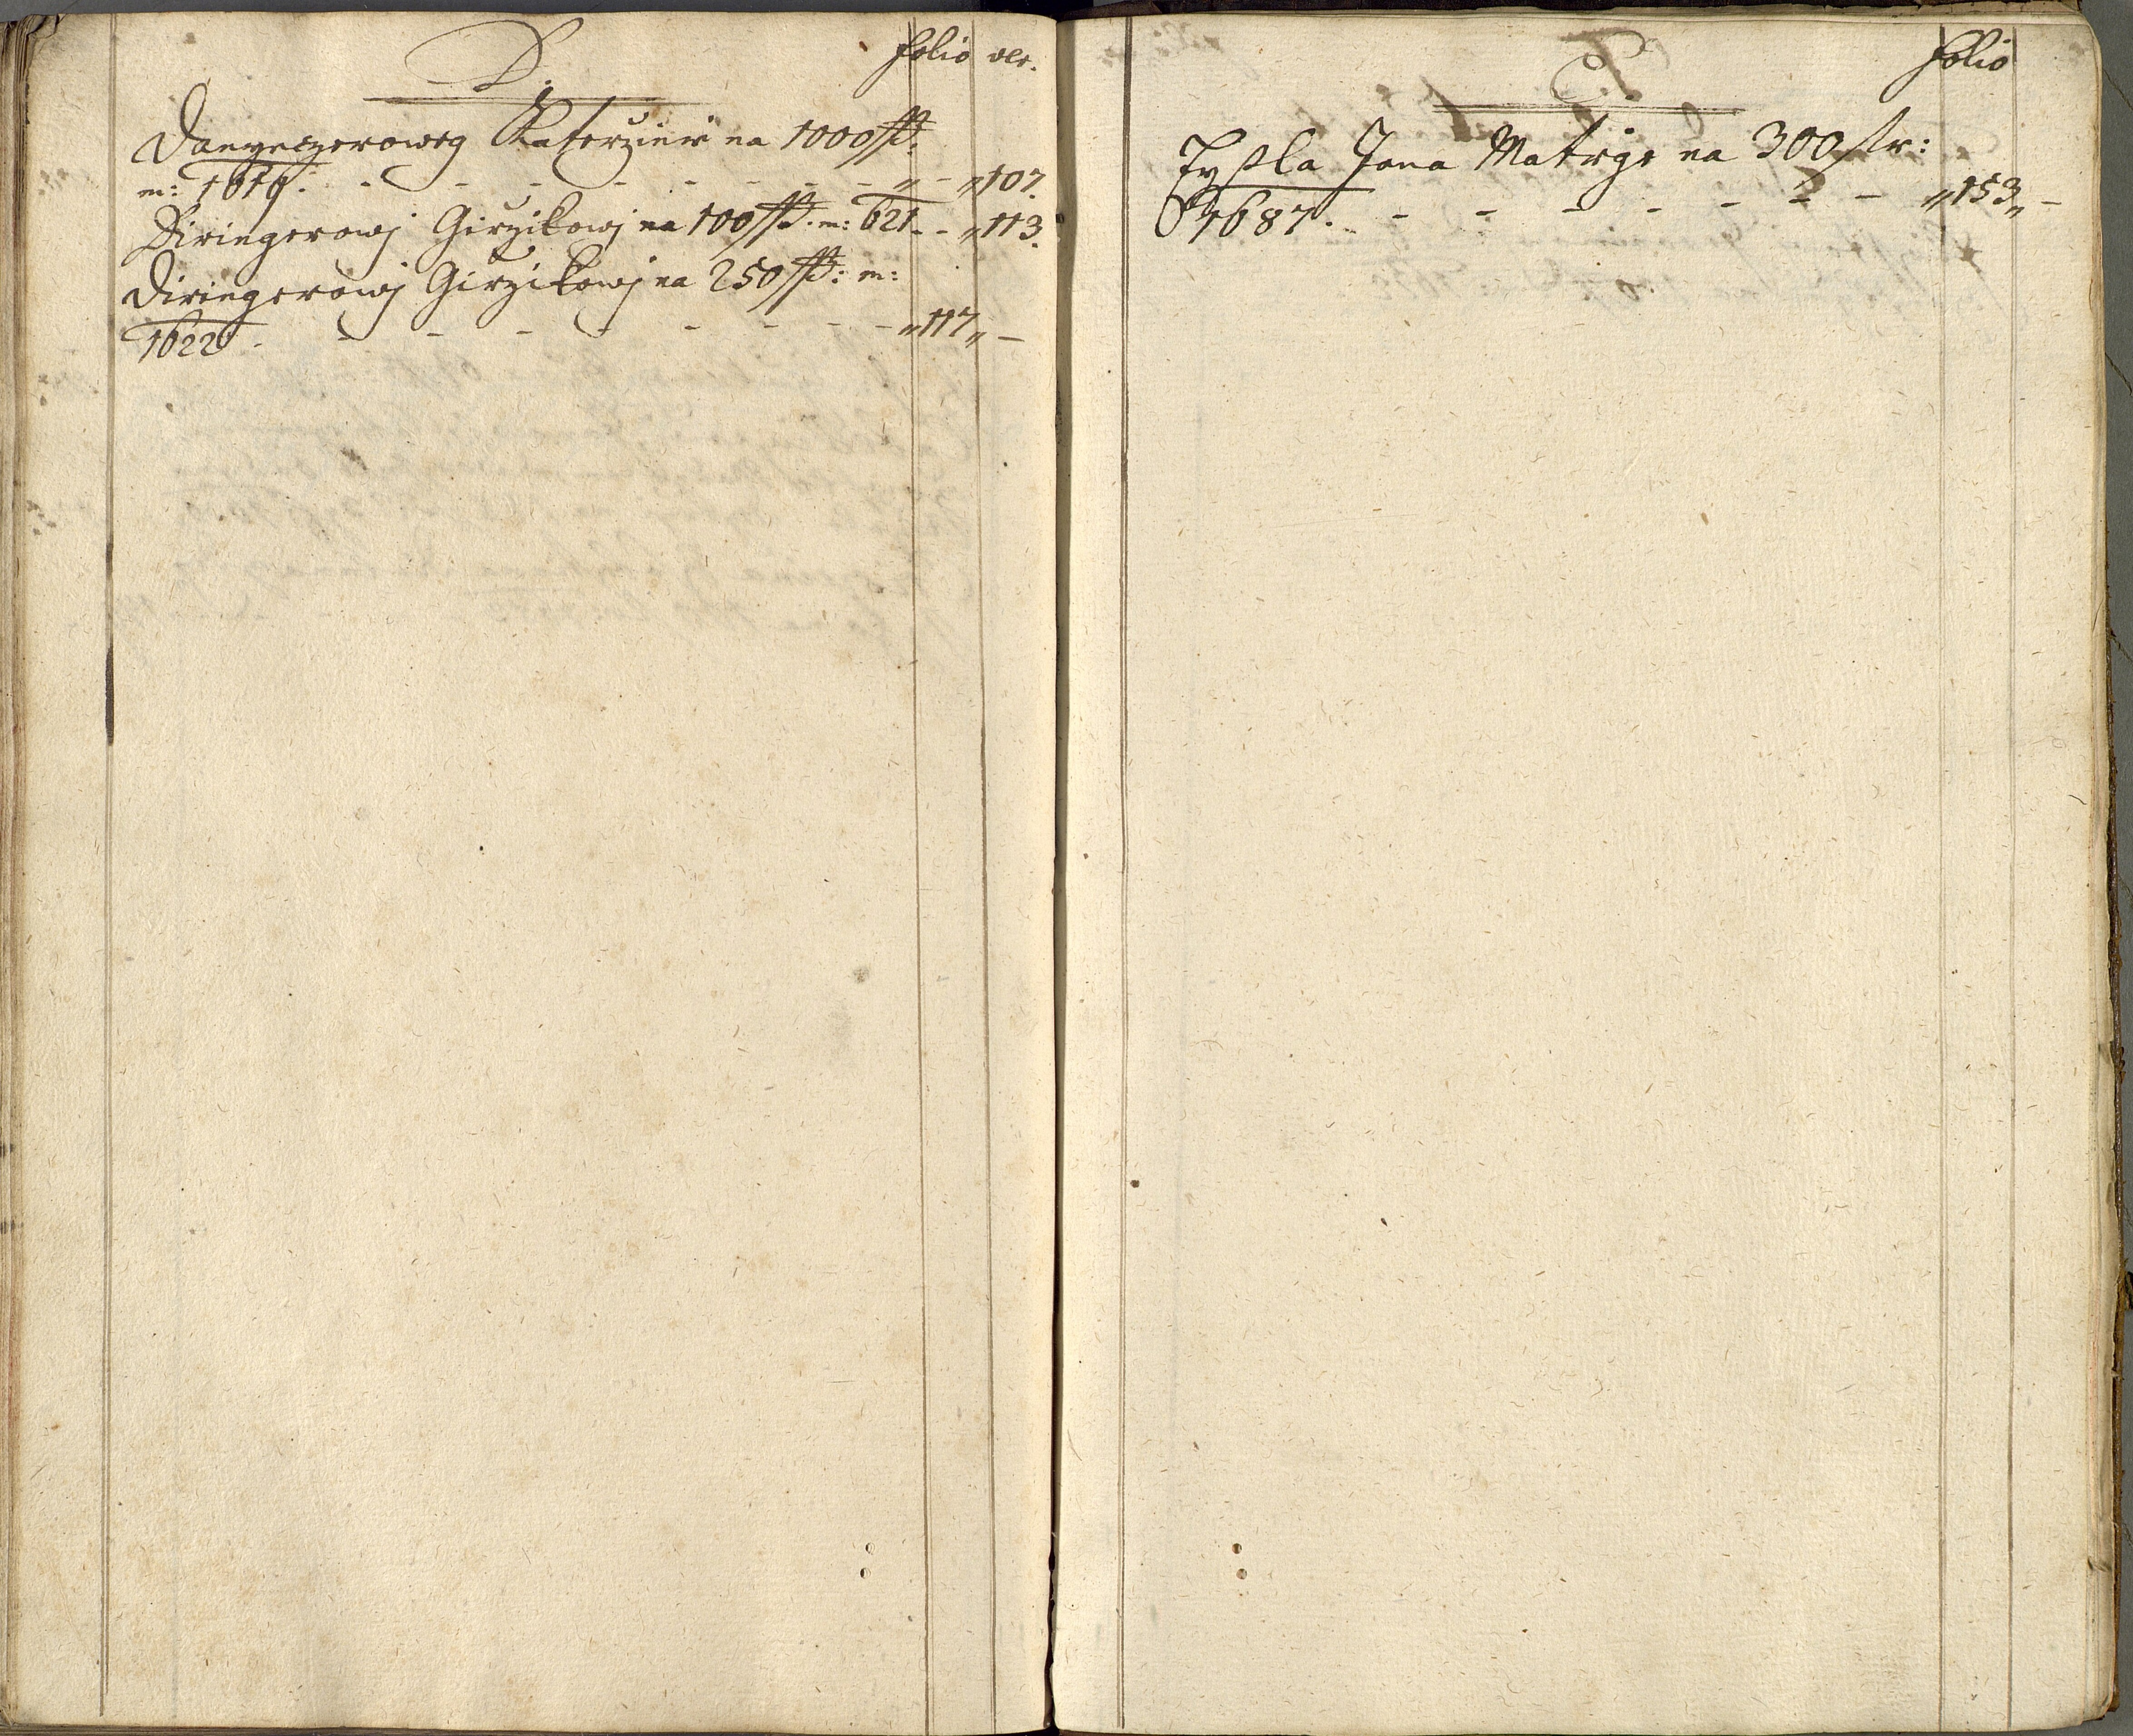 D. folio ver.
Danyerzerowey Katerzinie na 1000 ss:
m: 1616. - - - - - - - „ - „107.
Diringerowj Girzikowj na 100 ss. m: 621 - - „113.
Diringerowj Girzikowj na 250 ss: m:
1622. - - - - - - - - „117„ -
E. folio
Eysla Jana Matège na 300 sr:
1687. - - - - - - - „153„ -